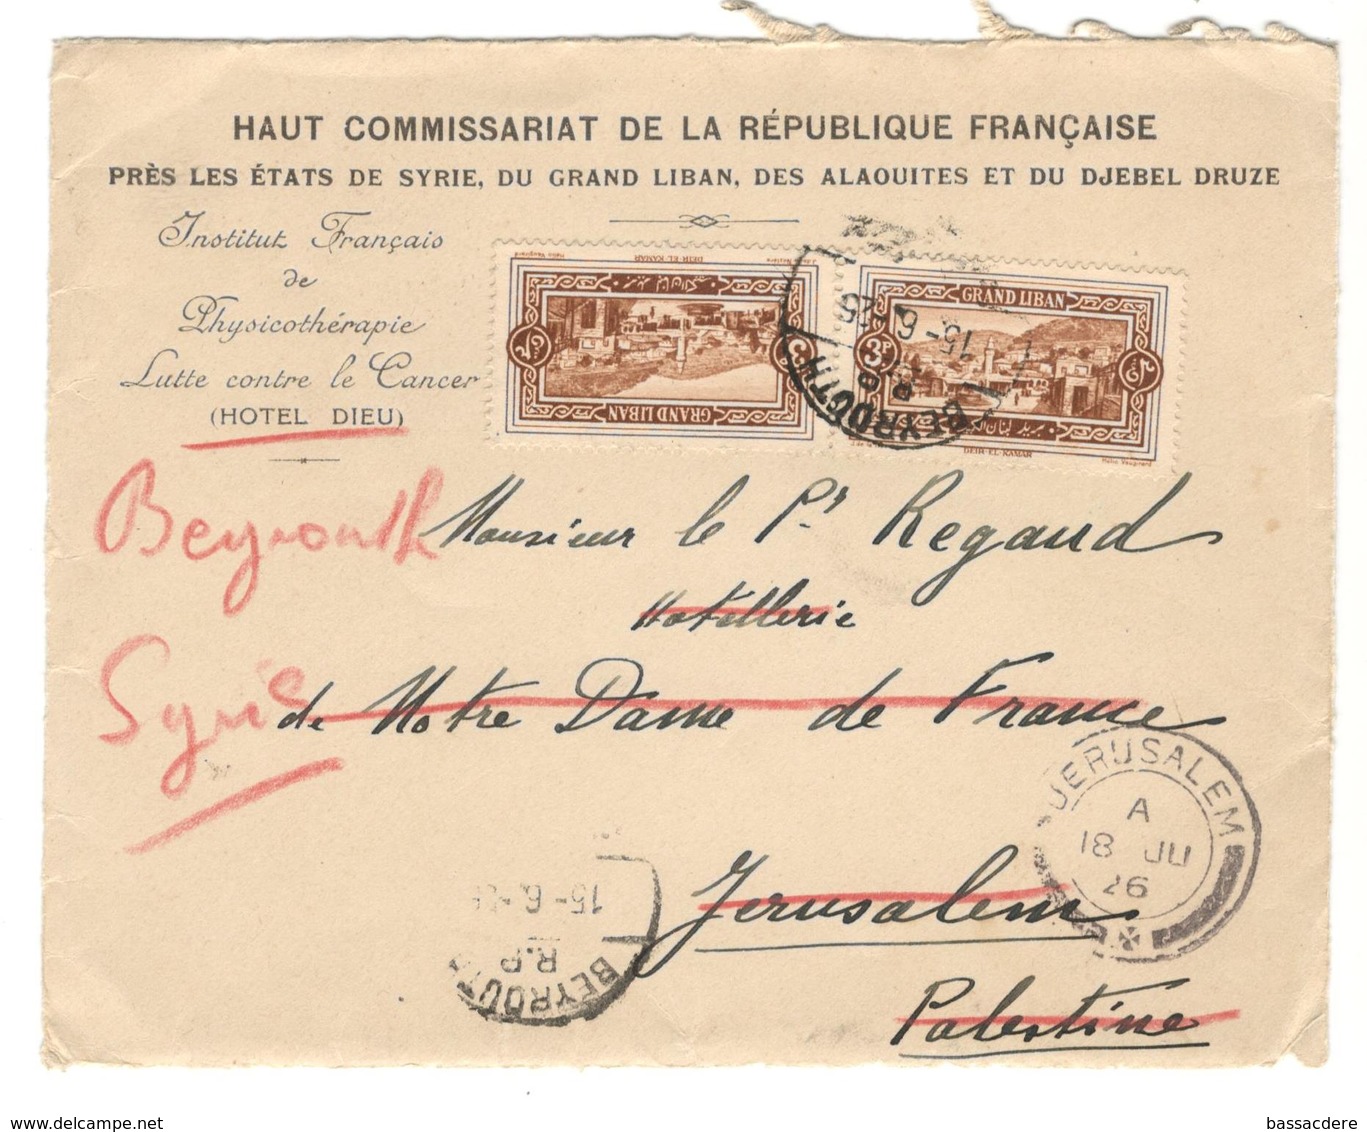 HAUT COMMISSARIAT DE LA RÉPUBLIQUE FRANÇAISE
PRÈS LES ÉTATS DE SYRIE, DU GRAND LIBAN, DES ALAOUITES ET DU DJEBEL DRUZE
Institut Français
de
Physicothérapie
Lutte contre le Cancer
(HOTEL DIEU)
DEIR-EL-KAMAR
Hélio Vaugirard
GRAND LIBAN
3P
GRAND LIBAN
3P
DEIR-EL-KAMAR
Hélio Vaugirard
15-6
BEYROUTH
R.P
Beyrouth
Monsieur le Pr Regaud
Hotellerie
Syrie
de Notre Dame de France
JERUSALEM
A
18 JU
26
Jerusalem
Palestine
15-6
R.P
BEYROUT
www.delcampe.net
bassacdere